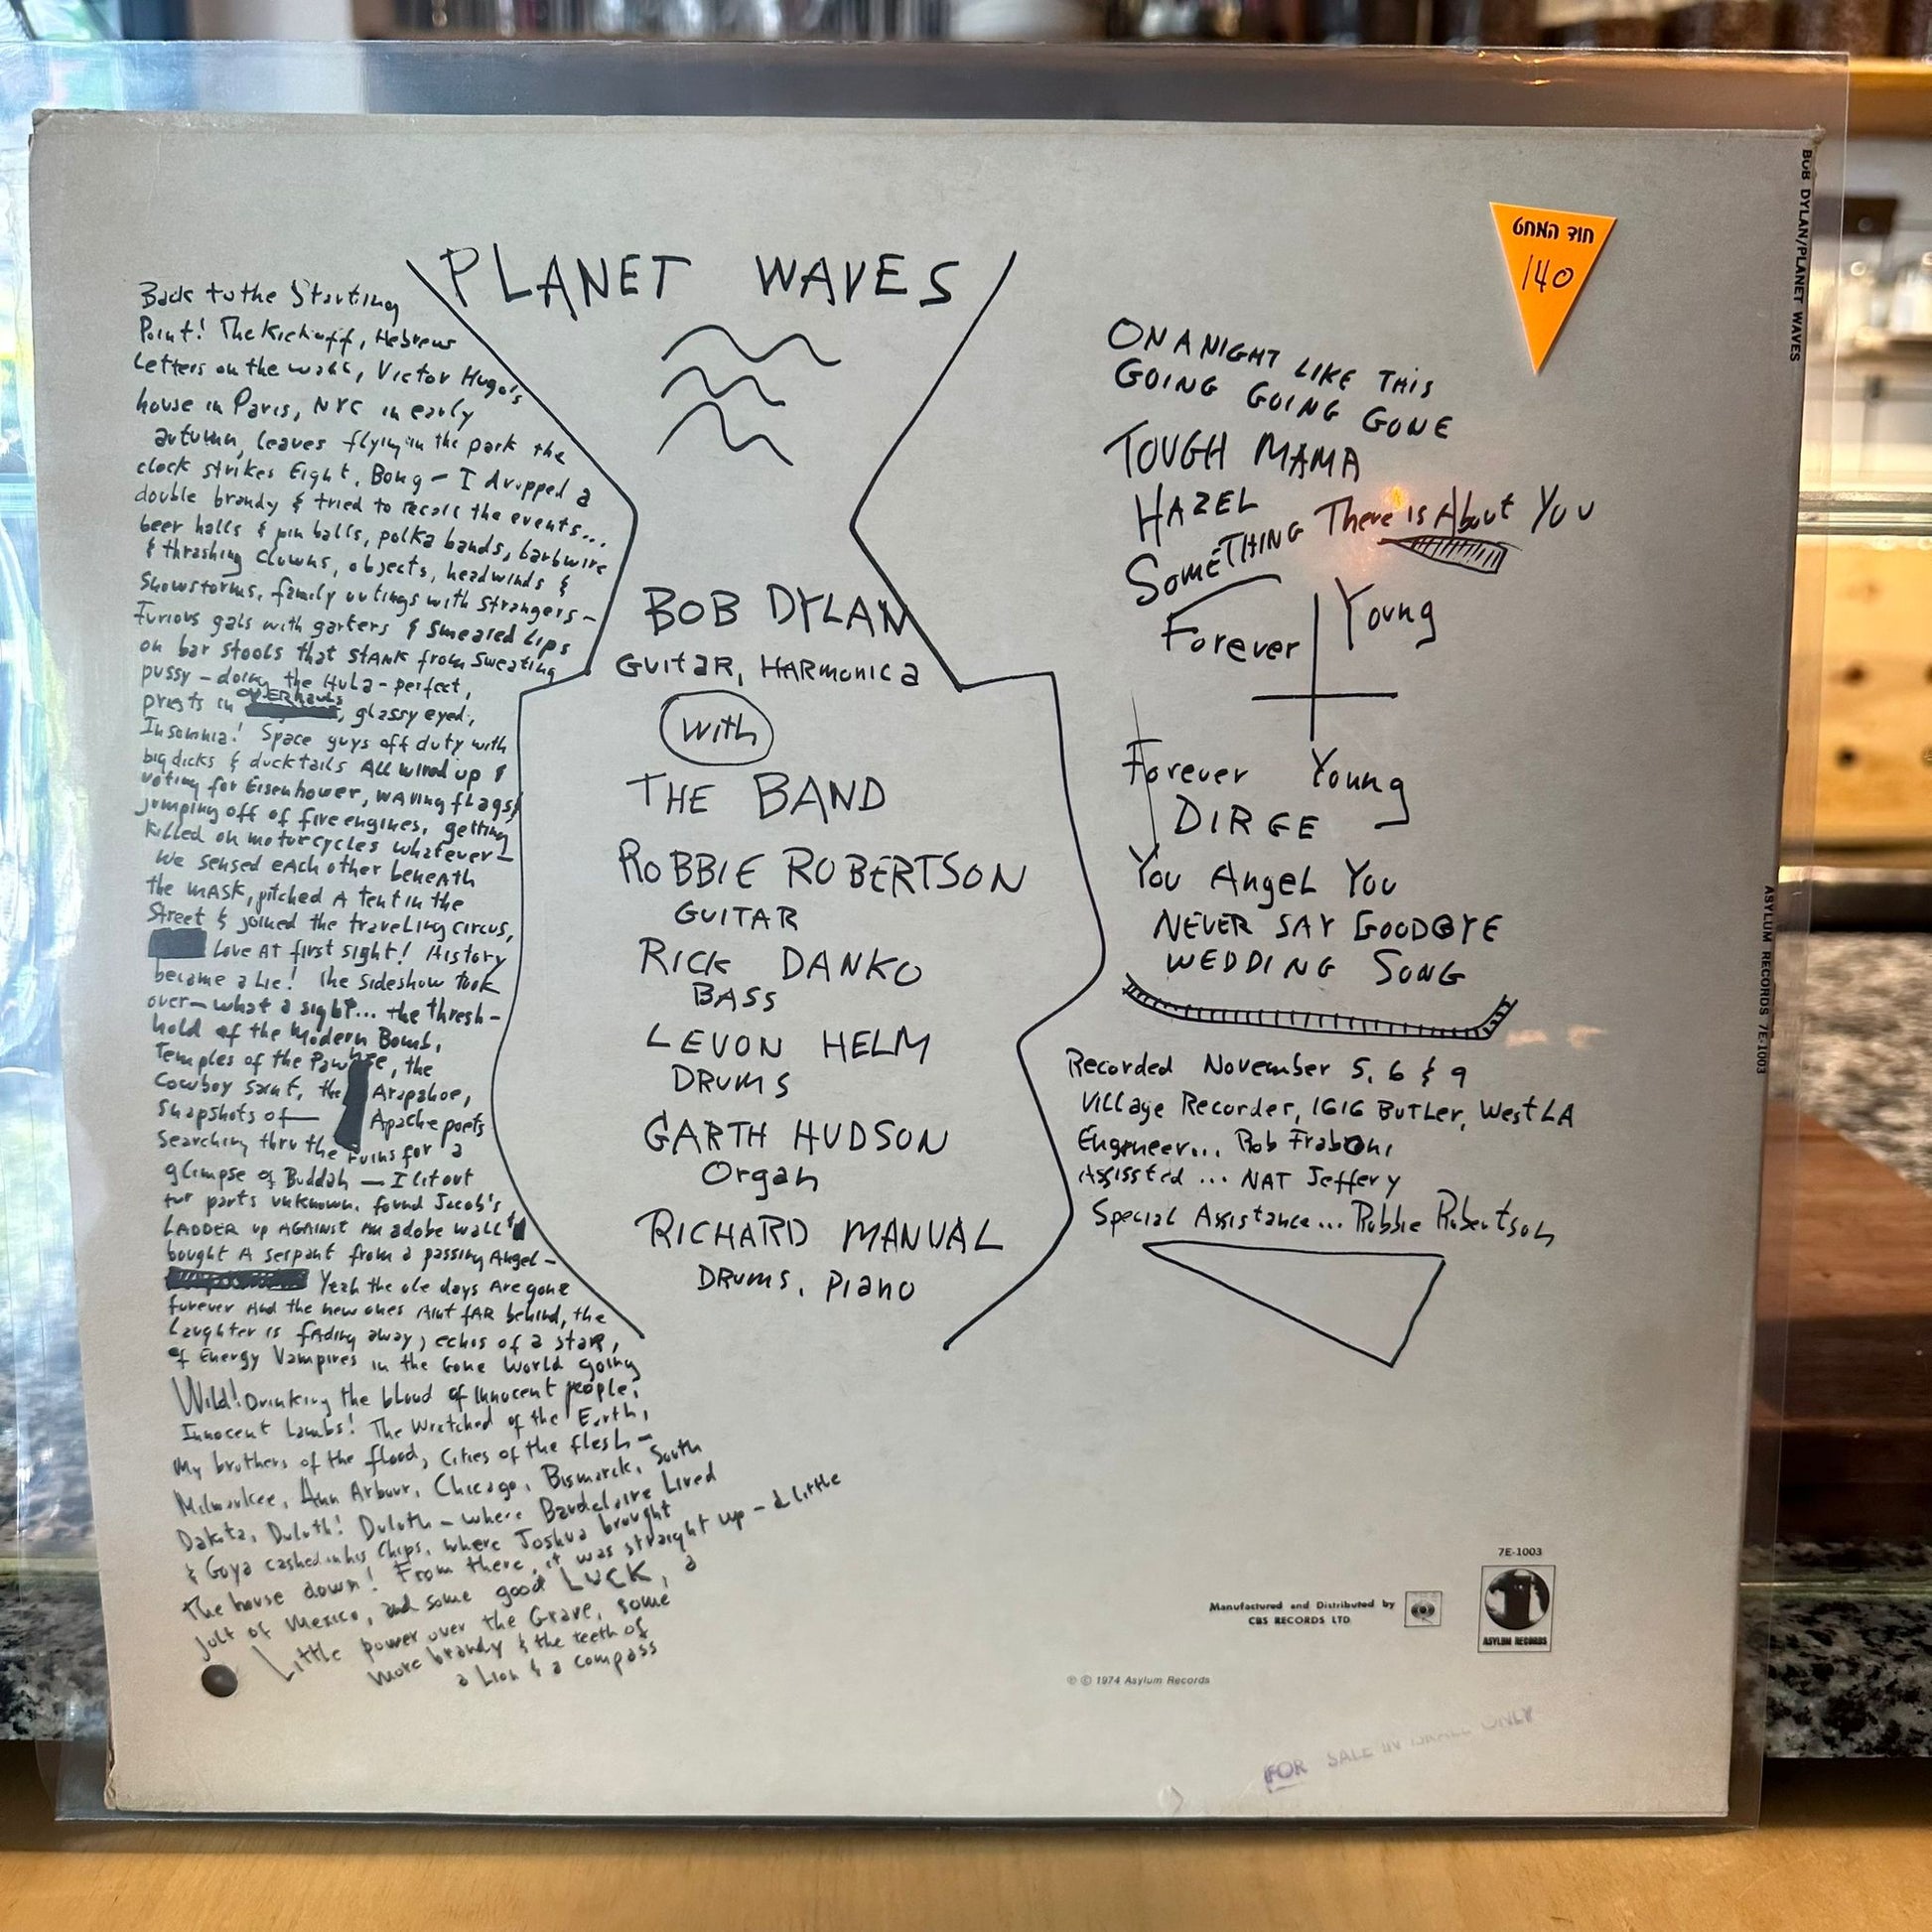 PLANET WAVES
Back to the Starting
Point! The Kickoff, Hebrew
Letters on the wall, Victor Hugo's
house in Paris, NYC in early
autumn, leaves flying in the park the
clock strikes Eight, Bong — I dropped a
double brandy & tried to recall the events...
beer halls & pin balls, polka bands, barbwire
& thrashing clowns, objects, headwinds &
Snowstorms, family outings with strangers —
Furious gals with garters & smeared Lips
on bar stools that STANK from sweating
pussy — doing the Hula - perfect,
priests in OVERhauls, glassy eyed,
Insomnia! Space guys off duty with
big dicks & ducktails All wired up &
voting for Eisenhower, WAVing flags,
jumping off of fire engines, getting
killed on motorcycles whatever —
We sensed each other beneath
the MASK, pitched A tent in the
Street & joined the traveling circus,
Love AT first sight! History
became a Lie! The Sideshow took
over — what a sight... the thresh-
hold of the Modern Bomb,
Temples of the Pawnee, the
Cowboy saint, the Arapahoe,
Snapshots of — Apache poets
searching thru the ruins for a
glimpse of Buddah — I lit out
for parts unknown, found Jacob's
LADDER up AGAINST an adobe wall &
bought A serpant from a passing Angel —
Yeah the ole days Are gone
forever And the new ones Aint fAR behind, the
Laughter is fAding away, echos of a star,
of Energy Vampires in the Gone World going
Wild! Drinking the blood of innocent people,
Innocent Lambs! The Wretched of the Earth,
My brothers of the flood, Cities of the flesh —
Milwaukee, Ann Arbour, Chicago, Bismarck, South
Dakota, Duluth! Duluth — where Baudelaire Lived
& Goya cashed in his Chips, where Joshua brought
The house down! From there, it was straight up — a little
jolt of Mexico, and some good LUCK, a
Little power over the Grave, some
more brandy & the teeth of
a Lion & a compass
BOB DYLAN
GUITAR, HARMONICA
With
THE BAND
ROBBIE ROBERTSON
GUITAR
RICK DANKO
BASS
LEVON HELM
DRUMS
GARTH HUDSON
Organ
RICHARD MANUAL
DRUMS, PIANO
חוד המחט
140
ON A NIGHT LIKE THIS
GOING GOING GONE
TOUGH MAMA
HAZEL
SOMETHING There is About You
Forever Young
Forever Young
DIRGE
You Angel You
NEVER SAY GOODBYE
WEDDING SONG
Recorded November 5, 6 & 9
Village Recorder, 1616 BUTLER, West LA
Engineer... Rob Fraboni
Assissted ... NAT Jeffery
Special Assistance... Robbie Robertson
7E-1003
Manufactured and Distributed by
CBS RECORDS LTD.
ASYLUM RECORDS
℗ © 1974 Asylum Records
FOR SALE IN ISRAEL ONLY
BOB DYLAN/PLANET WAVES
ASYLUM RECORDS 7E-1003